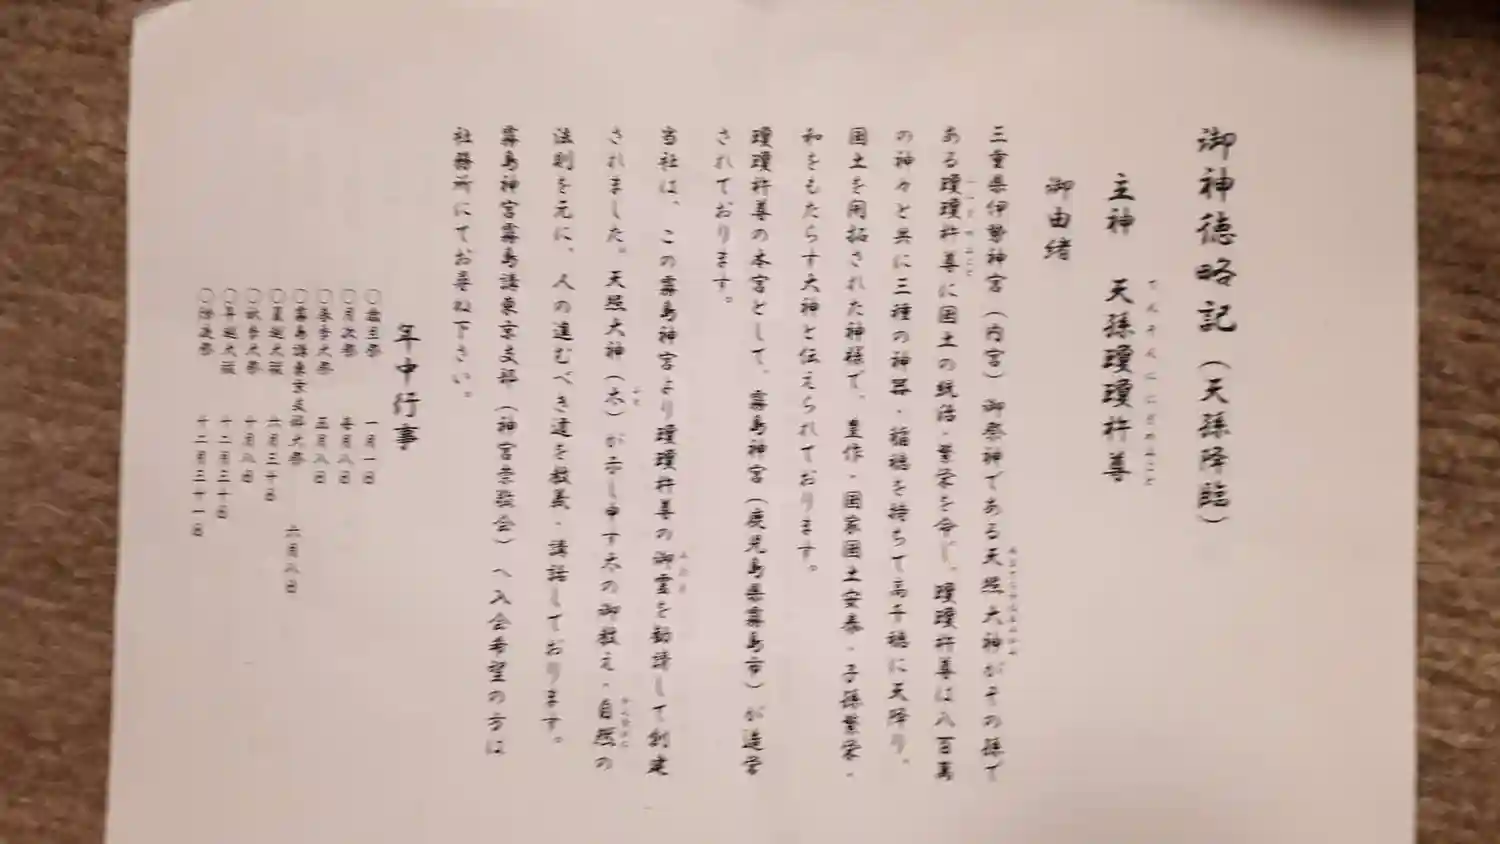 御神徳略記(天孫降臨)
主神 天孫瓊瓊杵尊
てんそんににぎのみこと
御由緒
三重県伊勢神宮(内宮)御祭神である天照大神がその孫で
ある瓊瓊杵尊に国土の統治・繁栄を命じ、瓊瓊杵尊は八百萬
の神々と共に三種の神器・稲穂を持ちて高千穂に天降り、
国土を開拓された神様で、豊作・国家国土安泰・子孫繁栄・
和をもたらす大神と伝えられております。
瓊瓊杵尊の本宮として、霧島神宮(鹿児島県霧島市)が造営
されております。
当社は、この霧島神宮より瓊瓊杵尊の御霊を勧請して創建
されました。天照大神( )が示し申す の御教え・自然の
法則を元に、人の進むべき道を教義・講話しております。
霧島神宮霧島講東京支部(神宮崇敬会)へ入会希望の方は
社務所にてお尋ね下さい。
年中行事
〇歳旦祭 一月一日
〇月次祭 毎月八日
〇春季大祭 三月八日
〇霧島講東京支部大祭 六月八日
〇夏越大祓 六月三十日
〇秋季大祭 十月八日
〇年越大祓 十二月三十日
〇除夜祭 十二月三十一日